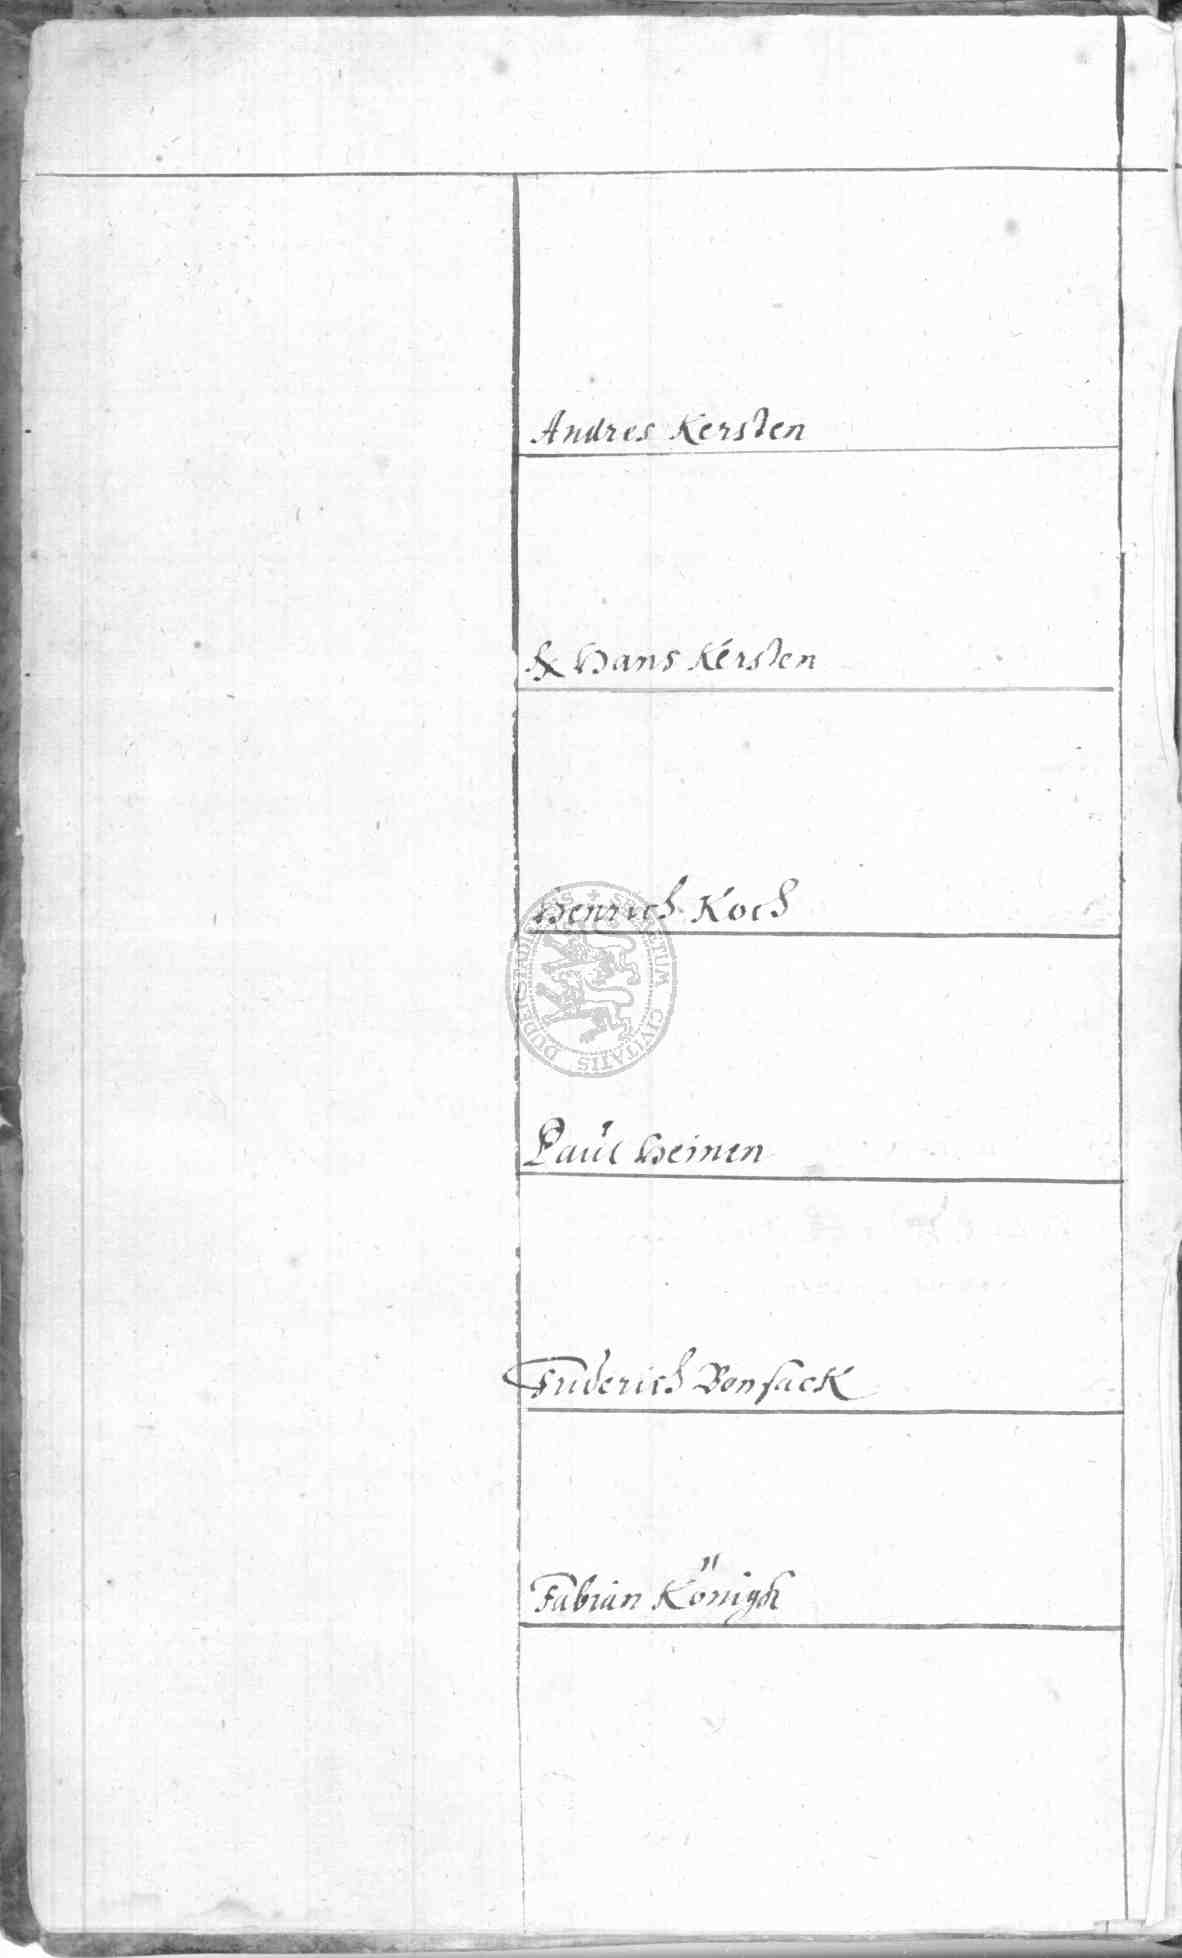 Andres Kersten
& Hans Kersten
Henrich Koch
SECRETUM CIVITATIS DUDERSTADIENSIS
Paul Heinen
Friderich Bonsack
Fabian Königk